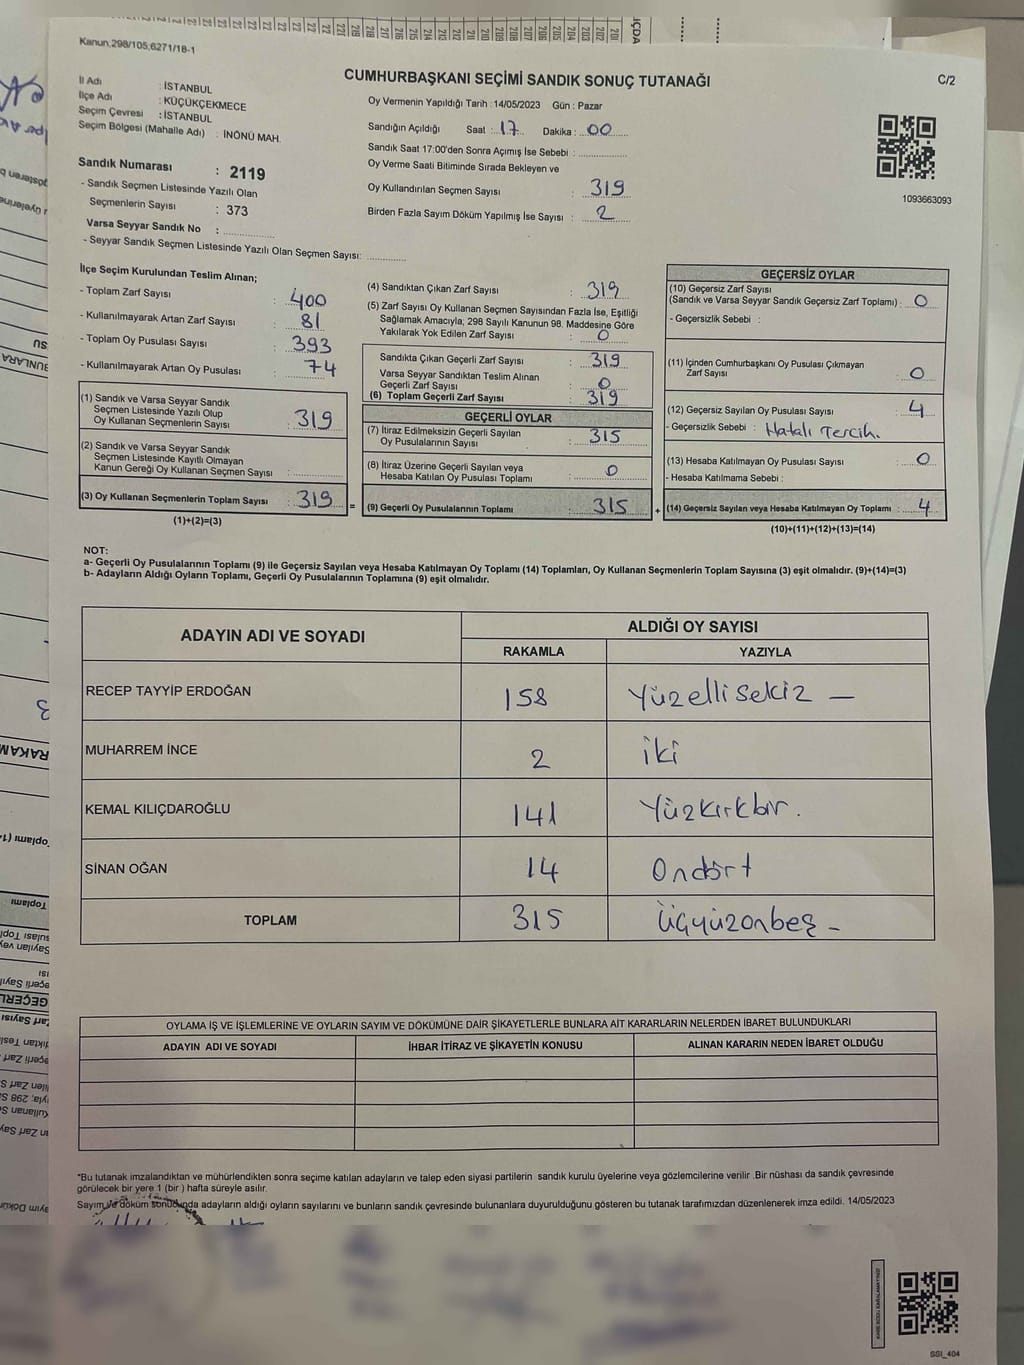 Kanun:298/105;6271/18-1
C/2
CUMHURBAŞKANI SEÇİMİ SANDIK SONUÇ TUTANAĞI
İl Adı : İSTANBUL
İlçe Adı : KÜÇÜKÇEKMECE
Seçim Çevresi : İSTANBUL
Seçim Bölgesi (Mahalle Adı) : İNÖNÜ MAH.
Sandık Numarası : 2119
- Sandık Seçmen Listesinde Yazılı Olan
Seçmenlerin Sayısı : 373
Varsa Seyyar Sandık No :
- Seyyar Sandık Seçmen Listesinde Yazılı Olan Seçmen Sayısı:
Oy Vermenin Yapıldığı Tarih : 14/05/2023 Gün : Pazar
Sandığın Açıldığı Saat : 17 Dakika : 00
Sandık Saat 17:00'den Sonra Açımış İse Sebebi :
Oy Verme Saati Bitiminde Sırada Bekleyen ve
Oy Kullandırılan Seçmen Sayısı : 319
Birden Fazla Sayım Döküm Yapılmış İse Sayısı : 2
1093663093
İlçe Seçim Kurulundan Teslim Alınan;
- Toplam Zarf Sayısı : 400
- Kullanılmayarak Artan Zarf Sayısı : 81
- Toplam Oy Pusulası Sayısı : 393
- Kullanılmayarak Artan Oy Pusulası : 74
(1) Sandık ve Varsa Seyyar Sandık
Seçmen Listesinde Yazılı Olup
Oy Kullanan Seçmenlerin Sayısı : 319
(2) Sandık ve Varsa Seyyar Sandık
Seçmen Listesinde Kayıtlı Olmayan
Kanun Gereği Oy Kullanan Seçmen Sayısı :
(3) Oy Kullanan Seçmenlerin Toplam Sayısı : 319 =
(1)+(2)=(3)
(4) Sandıktan Çıkan Zarf Sayısı : 319
(5) Zarf Sayısı Oy Kullanan Seçmen Sayısından Fazla İse, Eşitliği
Sağlamak Amacıyla, 298 Sayılı Kanunun 98. Maddesine Göre
Yakılarak Yok Edilen Zarf Sayısı : 0
Sandıkta Çıkan Geçerli Zarf Sayısı : 319
Varsa Seyyar Sandıktan Teslim Alınan
Geçerli Zarf Sayısı : 0
(6) Toplam Geçerli Zarf Sayısı : 319
GEÇERLİ OYLAR
(7) İtiraz Edilmeksizin Geçerli Sayılan
Oy Pusulalarının Sayısı : 315
(8) İtiraz Üzerine Geçerli Sayılan veya
Hesaba Katılan Oy Pusulası Toplamı : 0
(9) Geçerli Oy Pusulalarının Toplamı : 315 +
GEÇERSİZ OYLAR
(10) Geçersiz Zarf Sayısı
(Sandık ve Varsa Seyyar Sandık Geçersiz Zarf Toplamı) : 0
- Geçersizlik Sebebi :
(11) İçinden Cumhurbaşkanı Oy Pusulası Çıkmayan
Zarf Sayısı : 0
(12) Geçersiz Sayılan Oy Pusulası Sayısı : 4
- Geçersizlik Sebebi : Hatalı Tercih.
(13) Hesaba Katılmayan Oy Pusulası Sayısı : 0
- Hesaba Katılmama Sebebi :
(14) Geçersiz Sayılan veya Hesaba Katılmayan Oy Toplamı : 4
(10)+(11)+(12)+(13)=(14)
NOT:
a- Geçerli Oy Pusulalarının Toplamı (9) ile Geçersiz Sayılan veya Hesaba Katılmayan Oy Toplamı (14) Toplamları, Oy Kullanan Seçmenlerin Toplam Sayısına (3) eşit olmalıdır. (9)+(14)=(3)
b- Adayların Aldığı Oyların Toplamı, Geçerli Oy Pusulalarının Toplamına (9) eşit olmalıdır.
ADAYIN ADI VE SOYADI
ALDIĞI OY SAYISI
RAKAMLA YAZIYLA
RECEP TAYYİP ERDOĞAN 158 Yüzellisekiz —
MUHARREM İNCE 2 iki
KEMAL KILIÇDAROĞLU 141 Yüzkırkbir.
SİNAN OĞAN 14 Ondört
TOPLAM 315 Üçyüzonbeş -
OYLAMA İŞ VE İŞLEMLERİNE VE OYLARIN SAYIM VE DÖKÜMÜNE DAİR ŞİKAYETLERLE BUNLARA AİT KARARLARIN NELERDEN İBARET BULUNDUKLARI
ADAYIN ADI VE SOYADI İHBAR İTİRAZ VE ŞİKAYETİN KONUSU ALINAN KARARIN NEDEN İBARET OLDUĞU
*Bu tutanak imzalandıktan ve mühürlendikten sonra seçime katılan adayların ve talep eden siyasi partilerin sandık kurulu üyelerine veya gözlemcilerine verilir .Bir nüshası da sandık çevresinde
görülecek bir yere 1 (bir ) hafta süreyle asılır.
Sayım ve döküm sonucunda adayların aldığı oyların sayılarını ve bunların sandık çevresinde bulunanlara duyurulduğunu gösteren bu tutanak tarafımızdan düzenlenerek imza edildi. 14/05/2023
SSI_404